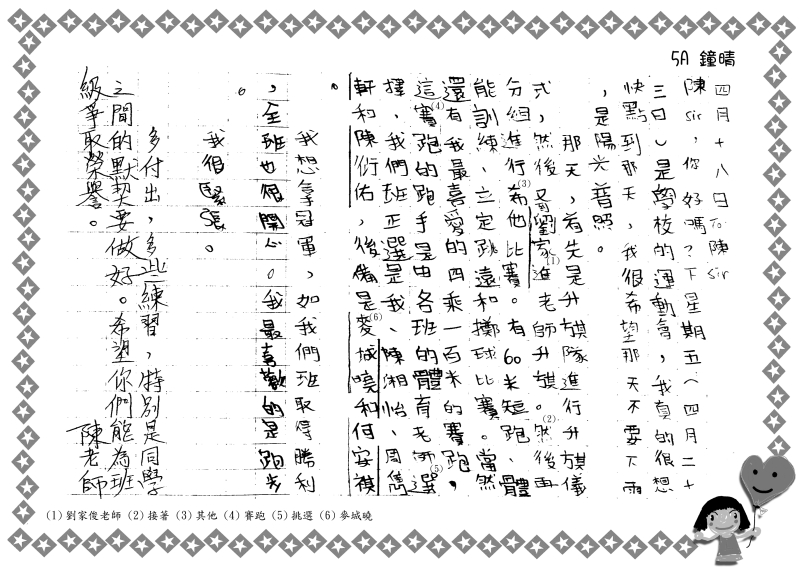 5A 鐘晴
四月十八日 To 陳 sir
陳 sir，你好嗎？下星期五（四月二十
三日）是學校的運動會，我真的很想
快點到那天，我很希望那天不要下雨
，是陽光普照。
那天，首先是升旗隊進行升旗儀
式，然後，劉家進(1)老師升旗。然(2)後再
分組進行希(3)他比賽。有60米短跑、體
能訓練、立定跳遠和擲球比賽。當然
還有我最喜愛的四乘一百米的賽跑，
這賽(4)跑的跑手是由各班的體育老師選(5)
擇，我們班正選是我、陳湘怡、周雋
軒和陳衍佑，後備是麥城(6)嘵和何安祺
。
我想拿冠軍，如我們班取得勝利
，全班也很開心。我最喜歡的是跑步
。
我很緊張。
多付出，多些練習，特別是同學
之間的默契要做好。希望你們能為班
級爭取榮譽。
陳老師
(1) 劉家俊老師 (2) 接著 (3) 其他 (4) 賽跑 (5) 挑選 (6) 麥城曉